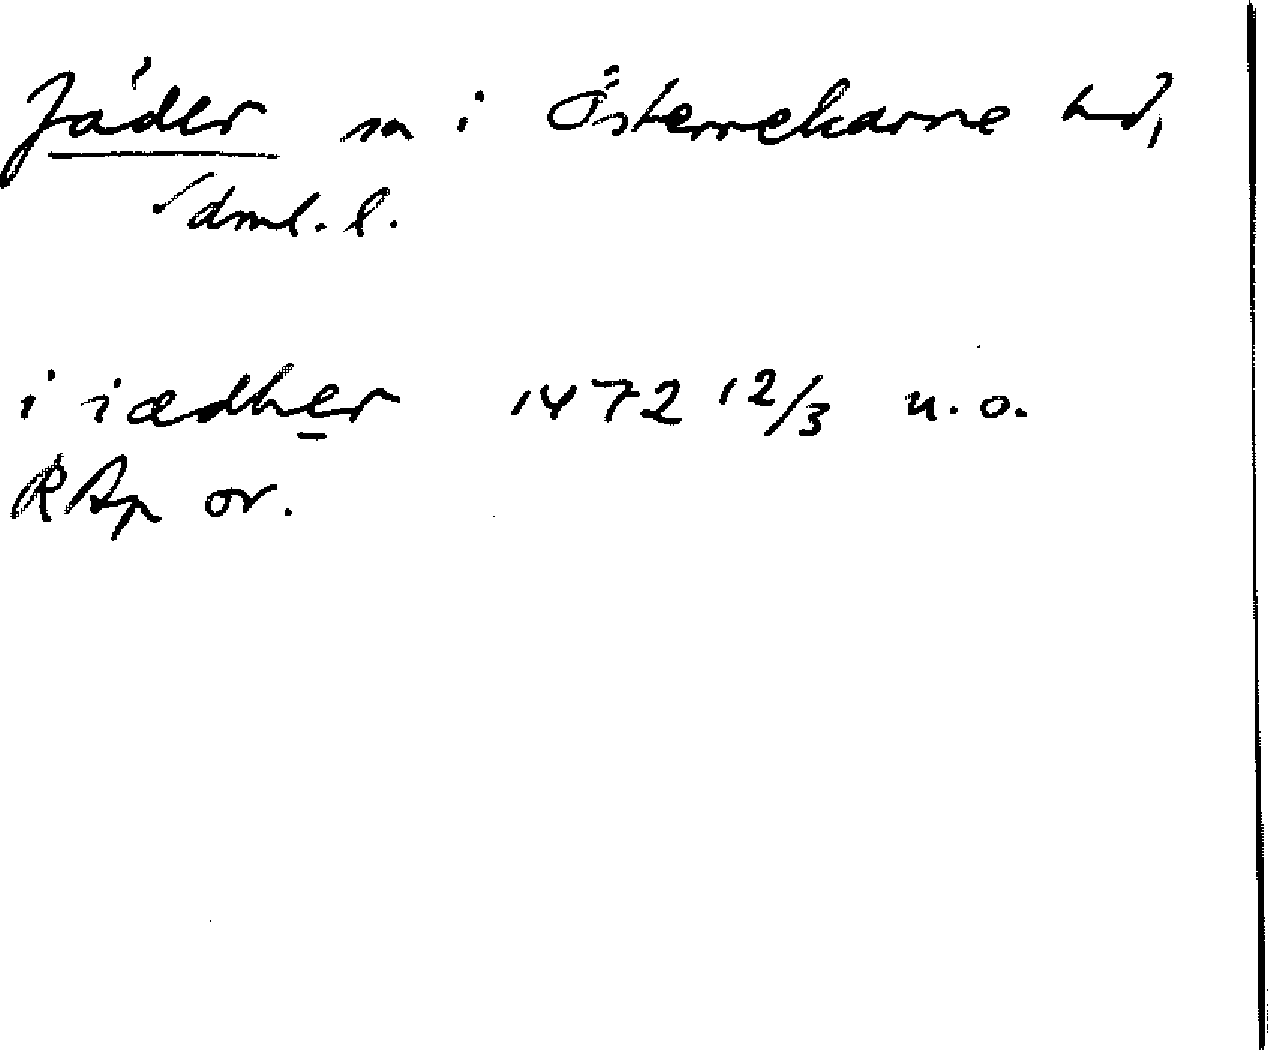 Jäder sn i Österrekarne hd,
Sdml. l.
i iædher 1472 12/3 u.o.
RAp or.